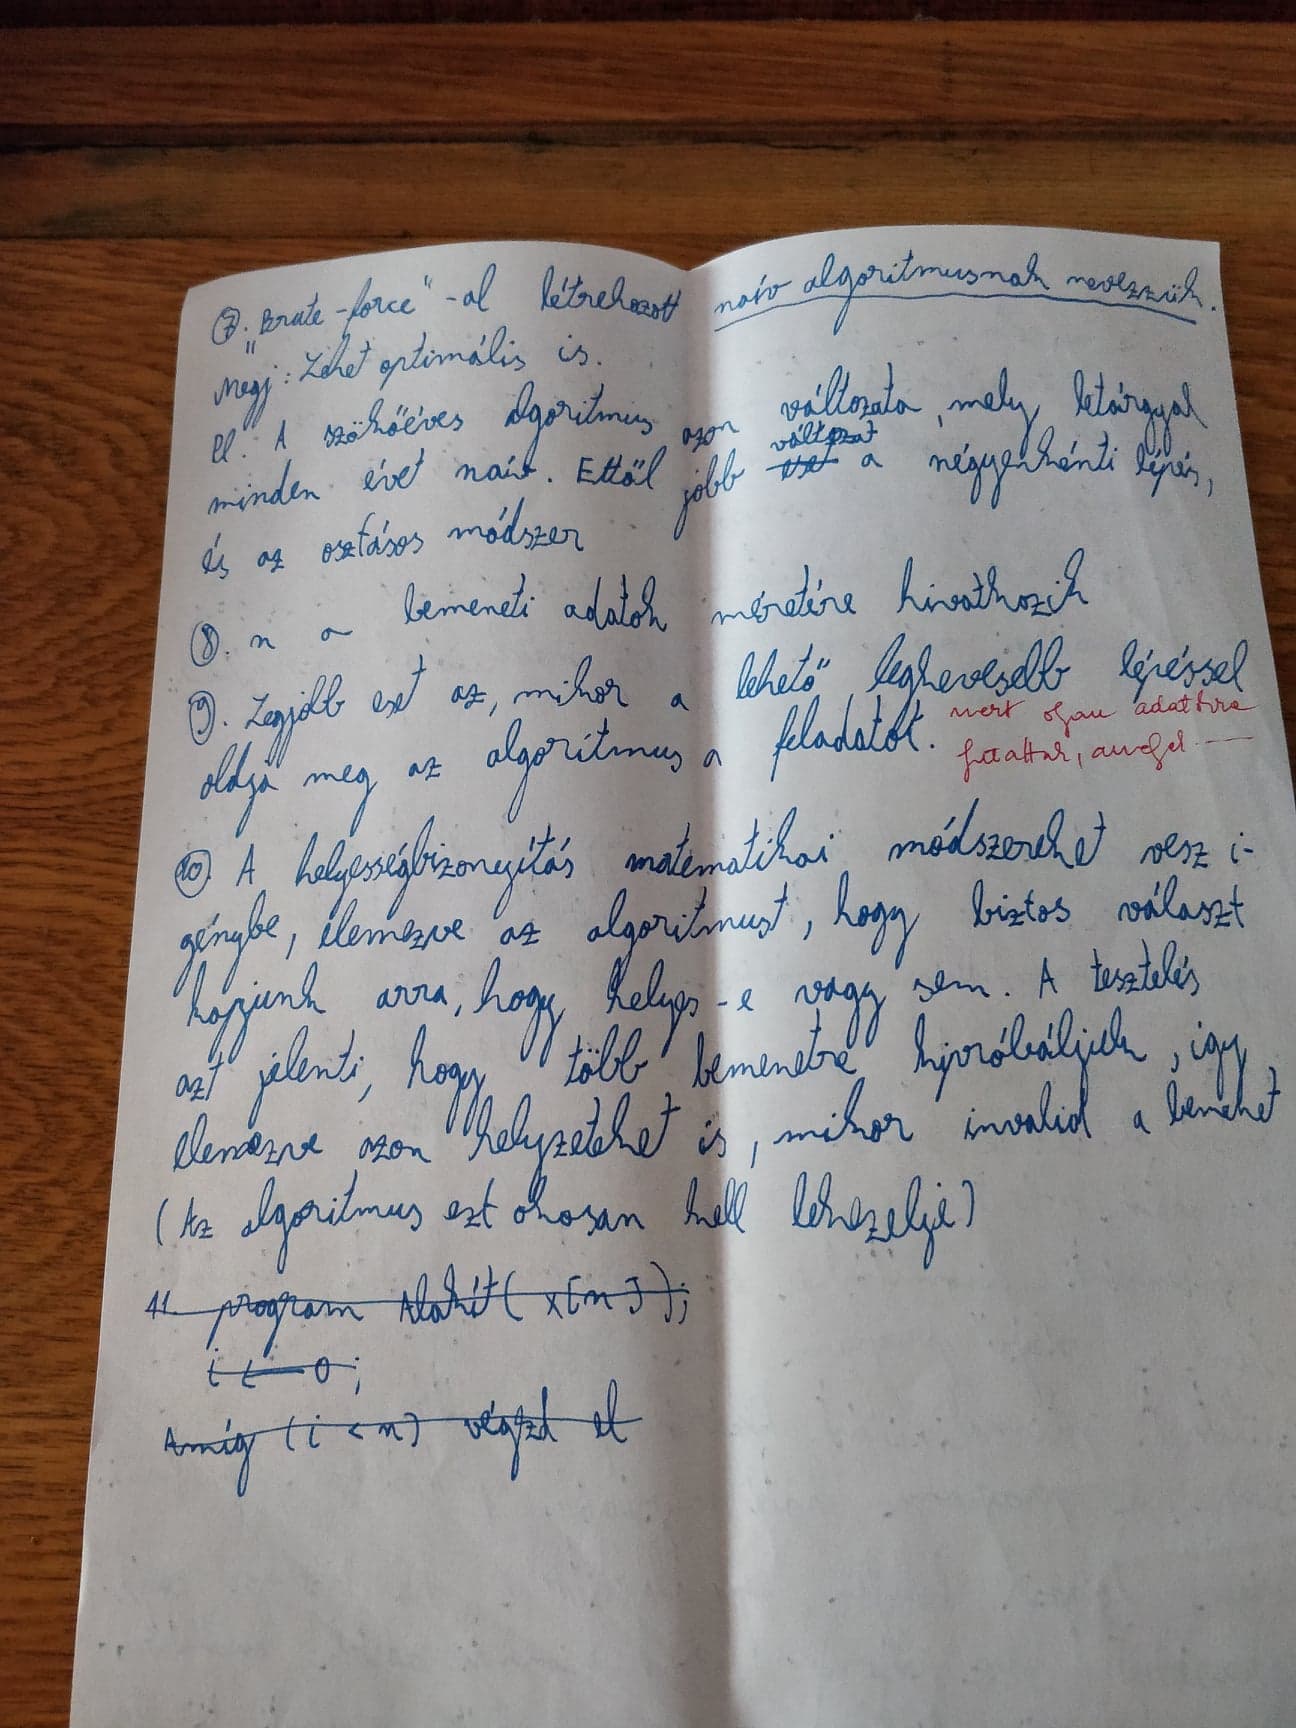 7. „Brute-force"-al létrehozott naív algoritmusnak nevezzük.
Megj: Lehet optimális is.
Pl: A szökőéves algoritmus azon változata, mely letárgyal
minden évet naív. Ettől jobb eset változat a négyenkénti lépés,
és az osztásos módszer
8. n a bemeneti adatok méretére hivatkozik
9. Legjobb eset az, mikor a lehető legkevesebb lépéssel
oldja meg az algoritmus a feladatot. mert olyan adatokra
futattuk, amelyek
10. A helyességbizonyítás matematikai módszereket vesz i-
génybe, elemezve az algoritmust, hogy biztos választ
kapjunk arra, hogy helyes-e vagy sem. A tesztelés
azt jelenti, hogy több bemenetre kipróbáljuk, így
elemezve azon helyzeteket is, mikor invalid a bemenet
(Az algoritmus ezt okosan kell lekezelje)
11. program Alakít( x[n] );
i ← 0;
Amíg (i < n) végezd el